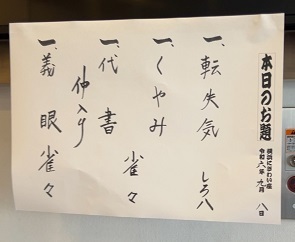 本日のお題
横浜にぎわい座
令和六年九月八日
一、転失気 しろ八
一、くやみ 雀々
一、代書
仲入り
一、義眼 雀々